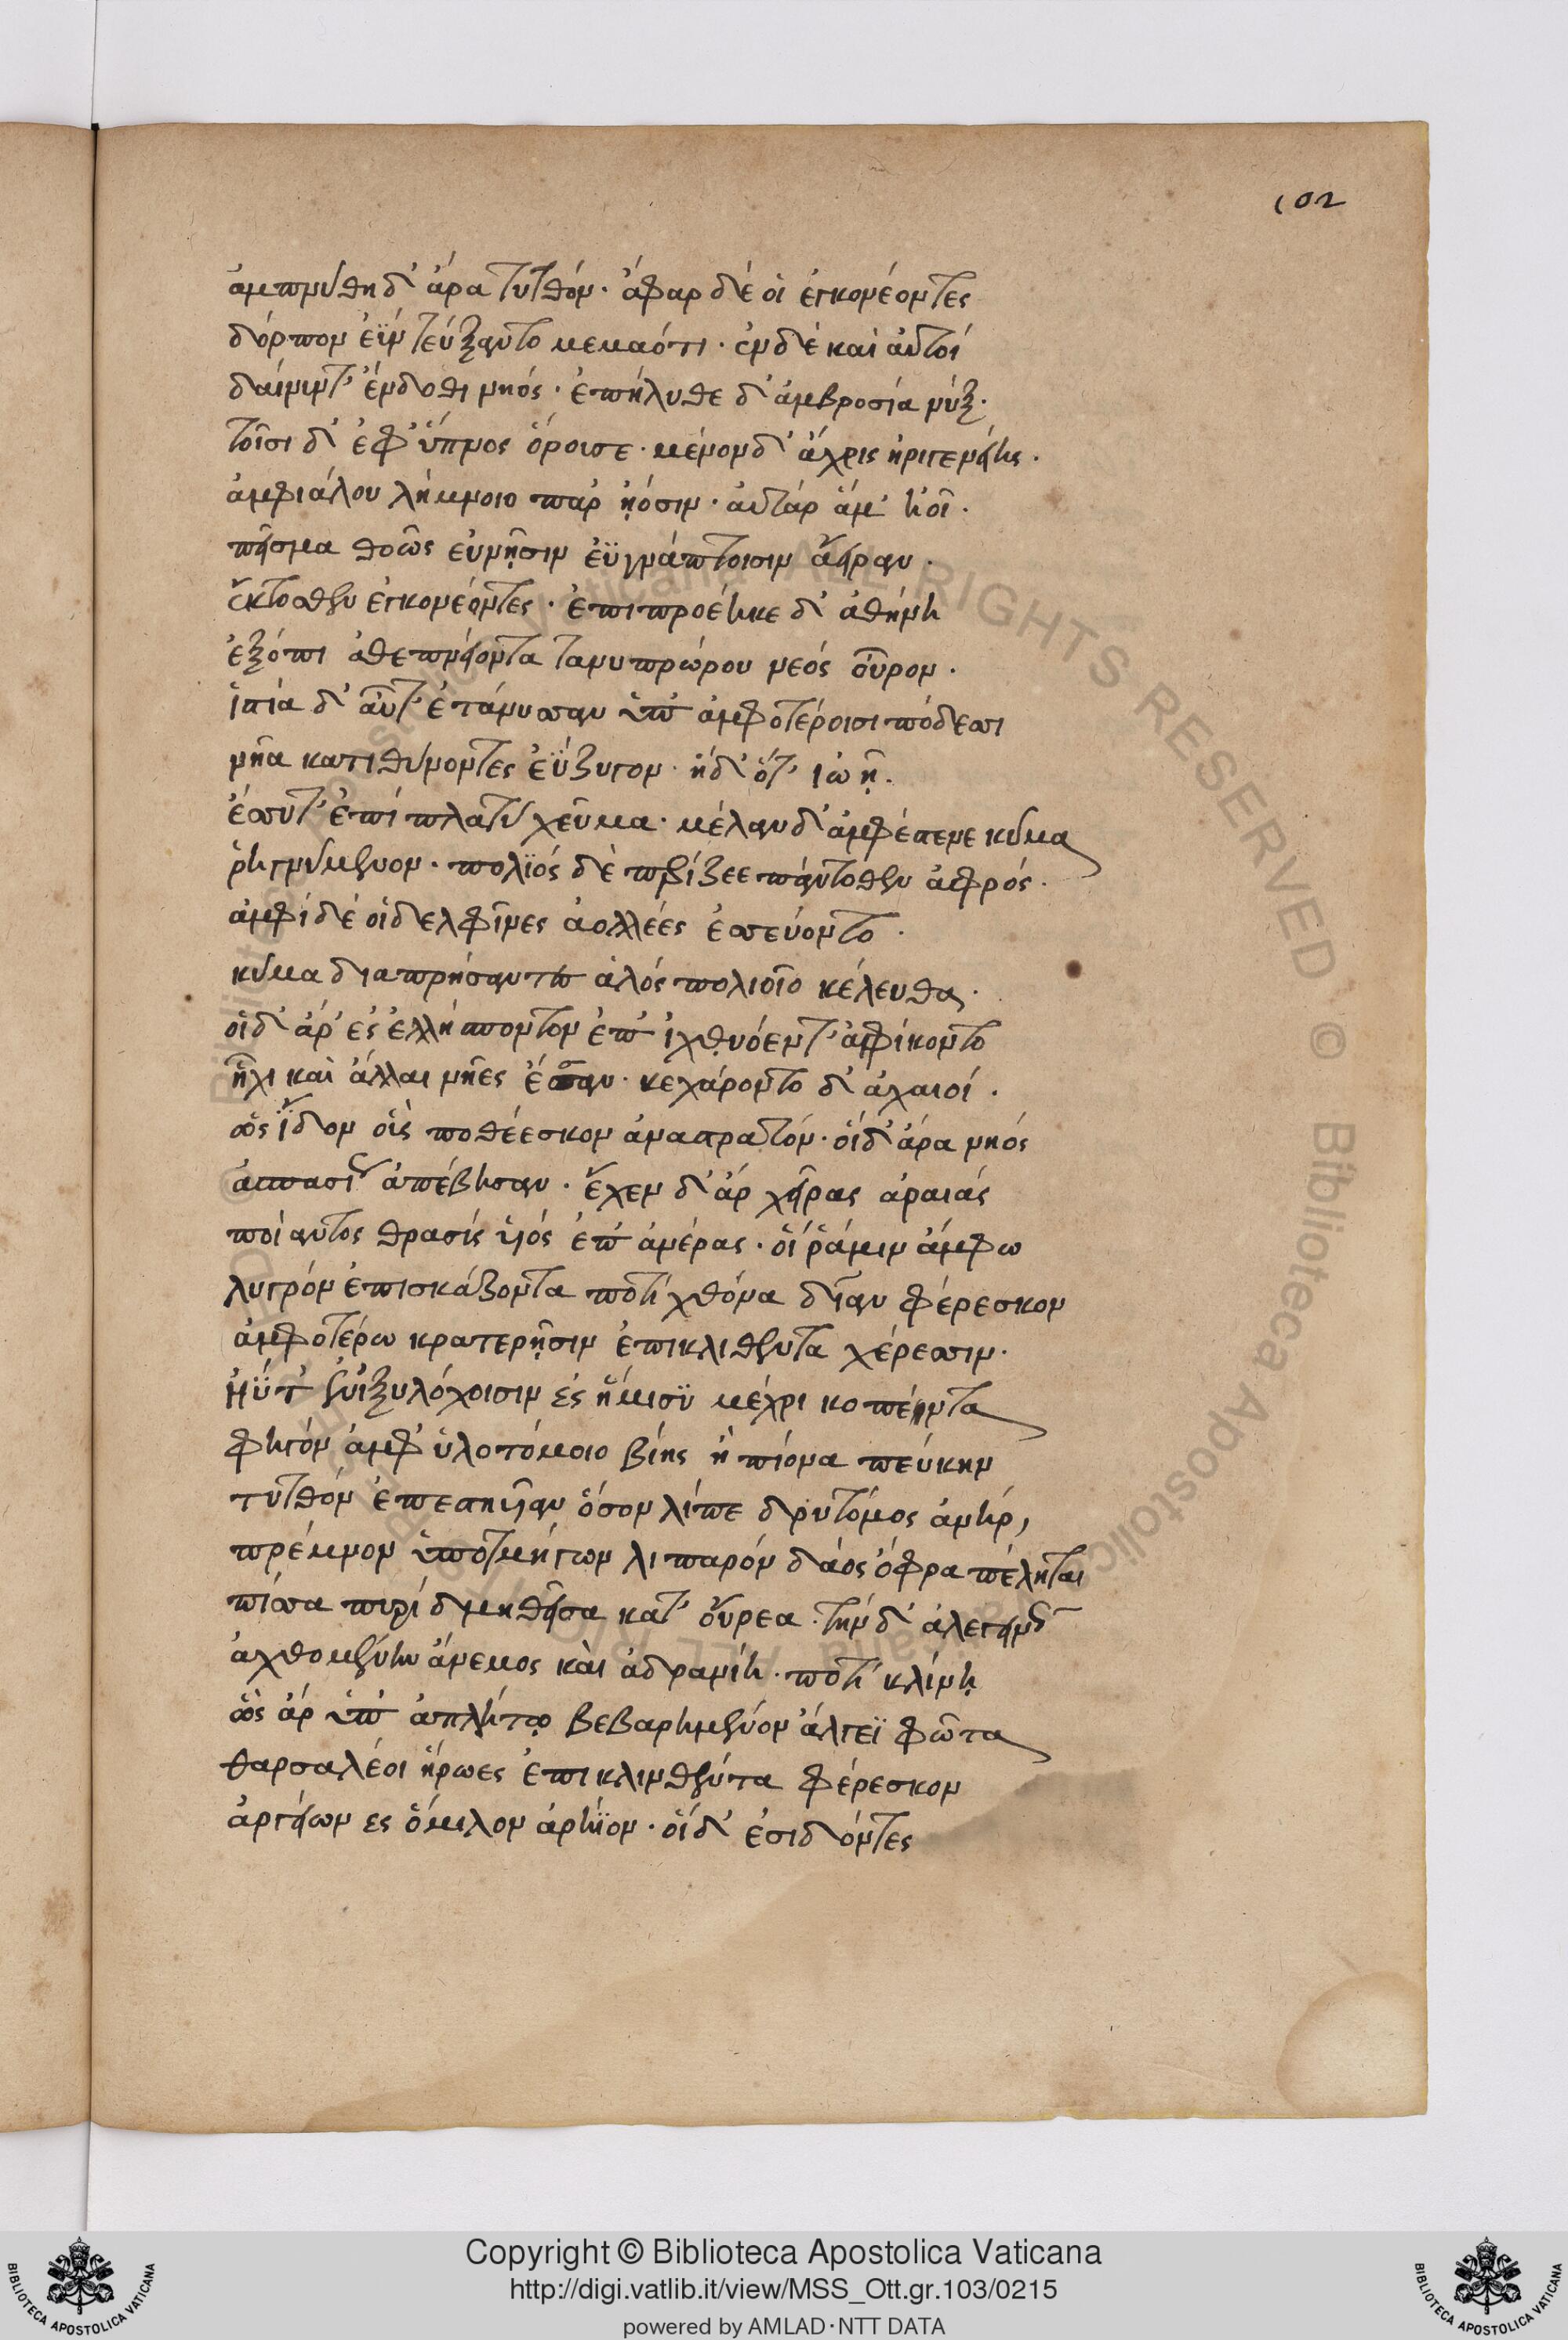 102
ἀμπνύθη δ' ἄρα τυτθόν· ἄφαρ δέ οἱ ἐγκονέοντες
δόρπον ἐϊν τεύξαντο μεμαότι· ἐν δὲ καὶ αὐτοὶ
δαίνυντ' ἔνδοθι νηός· ἐπήλυθε δ' ἀμβροσία νύξ·
τοῖσι δ' ἐφ' ὕπνος ὄρουσε· μένον δ' ἄχρις ἠριγενείης·
ἀμφιάλου λήμνοιο παρ' ᾐόσιν· αὐτὰρ ἅμ' ἠοῖ·
πεῖσμα θοῶς εὐνῇσιν ἐϋγνάπτοισιν ἄειραν·
ἔκτοσθεν ἐγκονέοντες· ἐπιπροέηκε δ' ἀθήνη
ἐξόπιθε πνείοντα τανυπρώρου νεὸς οὖρον·
ἱστία δ' αὖτ' ἐτάνυσσαν ὑπ' ἀμφοτέροισι πόδεσσι
νῆα κατιθύνοντες ἐΰζυγον· ἡ δ' ὅτ' ἰωῇ·
ἔσσυτ' ἐπὶ πλατὺ χεῦμα· μέλαν δ' ἀμφέστενε κῦμα
ῥηγνύμενον· πολϊὸς δὲ περίζεε πάντοθεν ἀφρός·
ἀμφὶ δέ οἱ δελφῖνες ἀολλέες ἐσσεύοντο·
κῦμα διαπρήσσαντες ἁλὸς πολιοῖο κέλευθα·
οἱ δ' ἄρ' ἐς ἑλλήσποντον ἐπ' ἰχθυόεντ' ἀφίκοντο
ἧχι καὶ ἄλλαι νῆες ἔσσαν· κεχάροντο δ' ἀχαιοί·
ὡς ἴδον οἷς ποθέεσκον ἀνὰ στρατόν· οἱ δ' ἄρα νηὸς
ἀσπασίως ἀπέβησαν· ἔχεν δ' ἄρ χεῖρας ἀραιὰς
ποίαντος θρασὺς υἱὸς ἐπ' ἀνέρας· οἵ ῥά μιν ἄμφω
λυγρὸν ἐπισκάζοντα ποτὶ χθόνα δῖαν φέρεσκον
ἀμφοτέρω κρατερῇσιν ἐπικλιθέντα χέρεσσιν·
ἠΰτ' ἐνὶ ξυλόχοισιν ἐς ἥμισϋ μέχρι κοπέντα
φηγὸν ἀμφ' ὑλοτόμοιο βίης ἢ πίονα πεύκην
τυτθὸν ἐπεστηυῖαν ὅσον λίπε δρυτόμος ἀνήρ,
πρέμνον ὑποτμήγων λιπαρὸν δάος ὄφρα πέληται
πίσσα πυρὶ δμηθεῖσα κατ' οὔρεα· τὴν δ' ἀλεγεινῶς
ἀχθομένην ἄνεμος καὶ ἀδρανίη· ποτὶ κλίνῃ
ὣς ἄρ' ὑπ' ἀπλήτῳ βεβαρημένον ἄλγεϊ φῶτα
θαρσαλέοι ἥρωες ἐπικλινθέντα φέρεσκον
ἀργείων ες ὅμιλον ἀρήϊον· οἱ δ' ἐσιδόντες
Copyright © Biblioteca Apostolica Vaticana
http://digi.vatlib.it/view/MSS_Ott.gr.103/0215
powered by AMLAD·NTT DATA